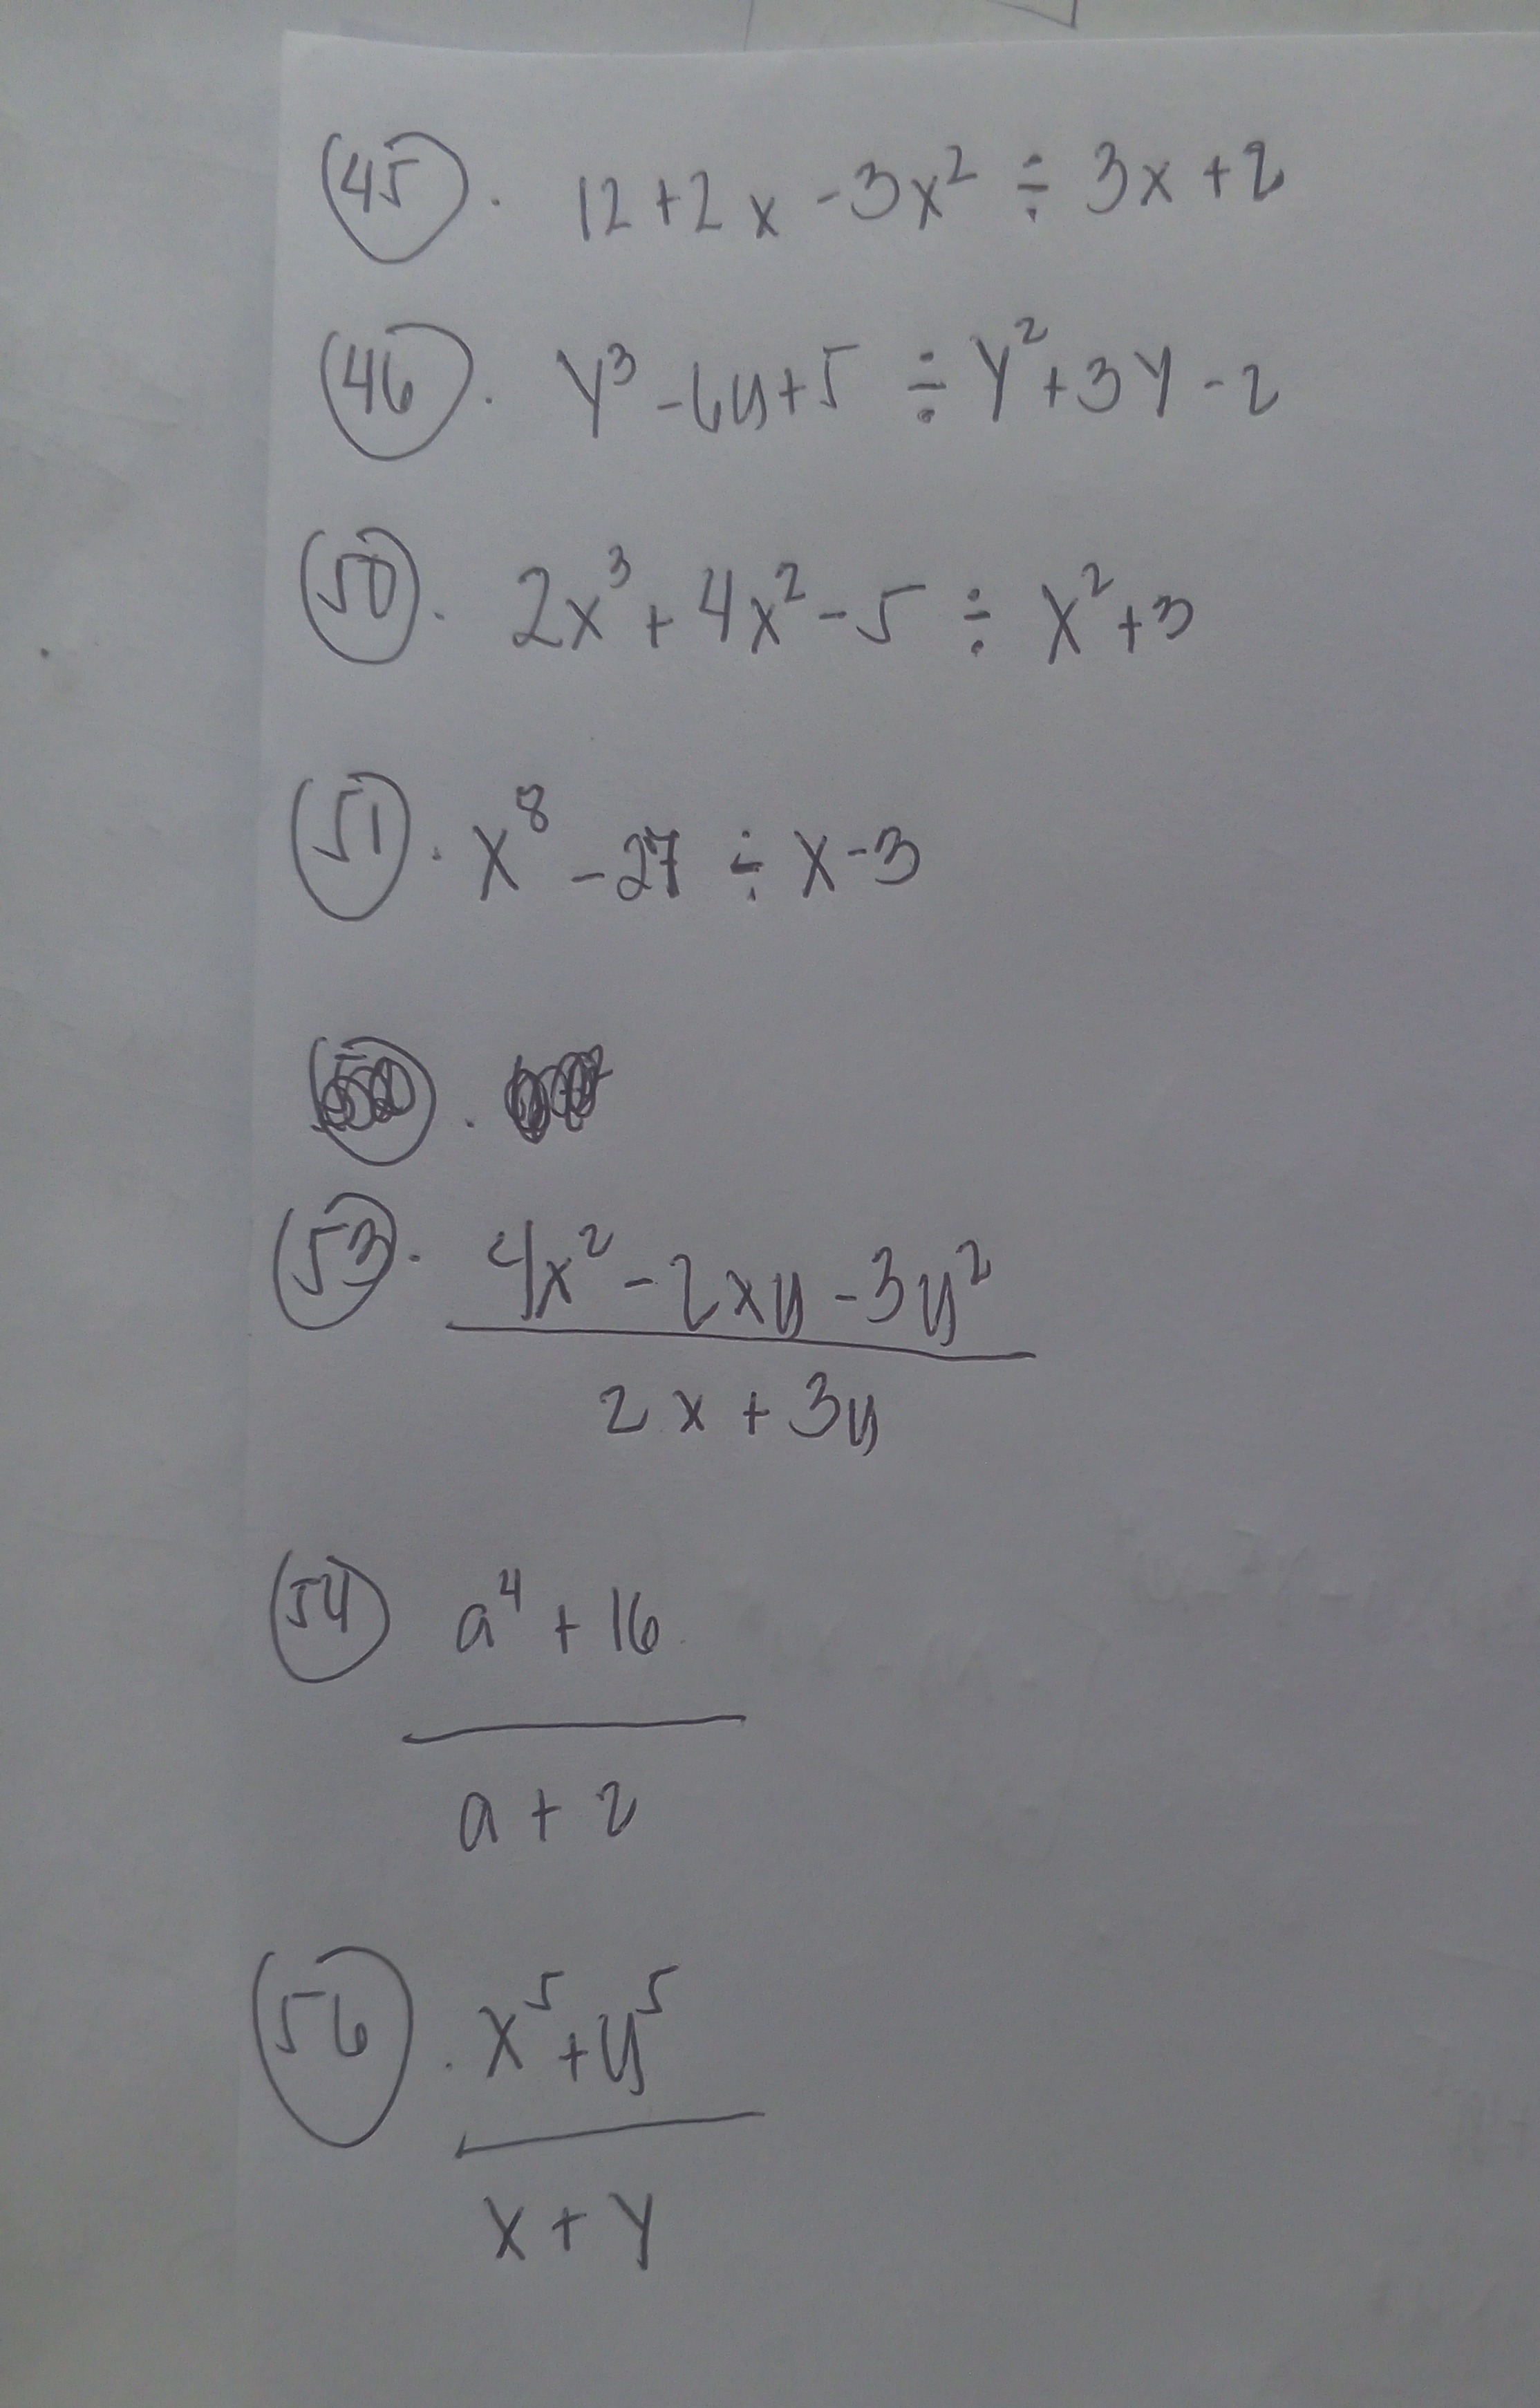 (45). 12 + 2x - 3x² ÷ 3x + 2
(46). y³ - 6y + 5 ÷ y² + 3y - 2
(50). 2x³ + 4x² - 5 ÷ x² + 3
(51). x⁸ - 27 ÷ x - 3
(53). 4x² - 2xy - 3y²
2x + 3y
(54) a⁴ + 16
a + 2
(56). x⁵ + y⁵
x + y